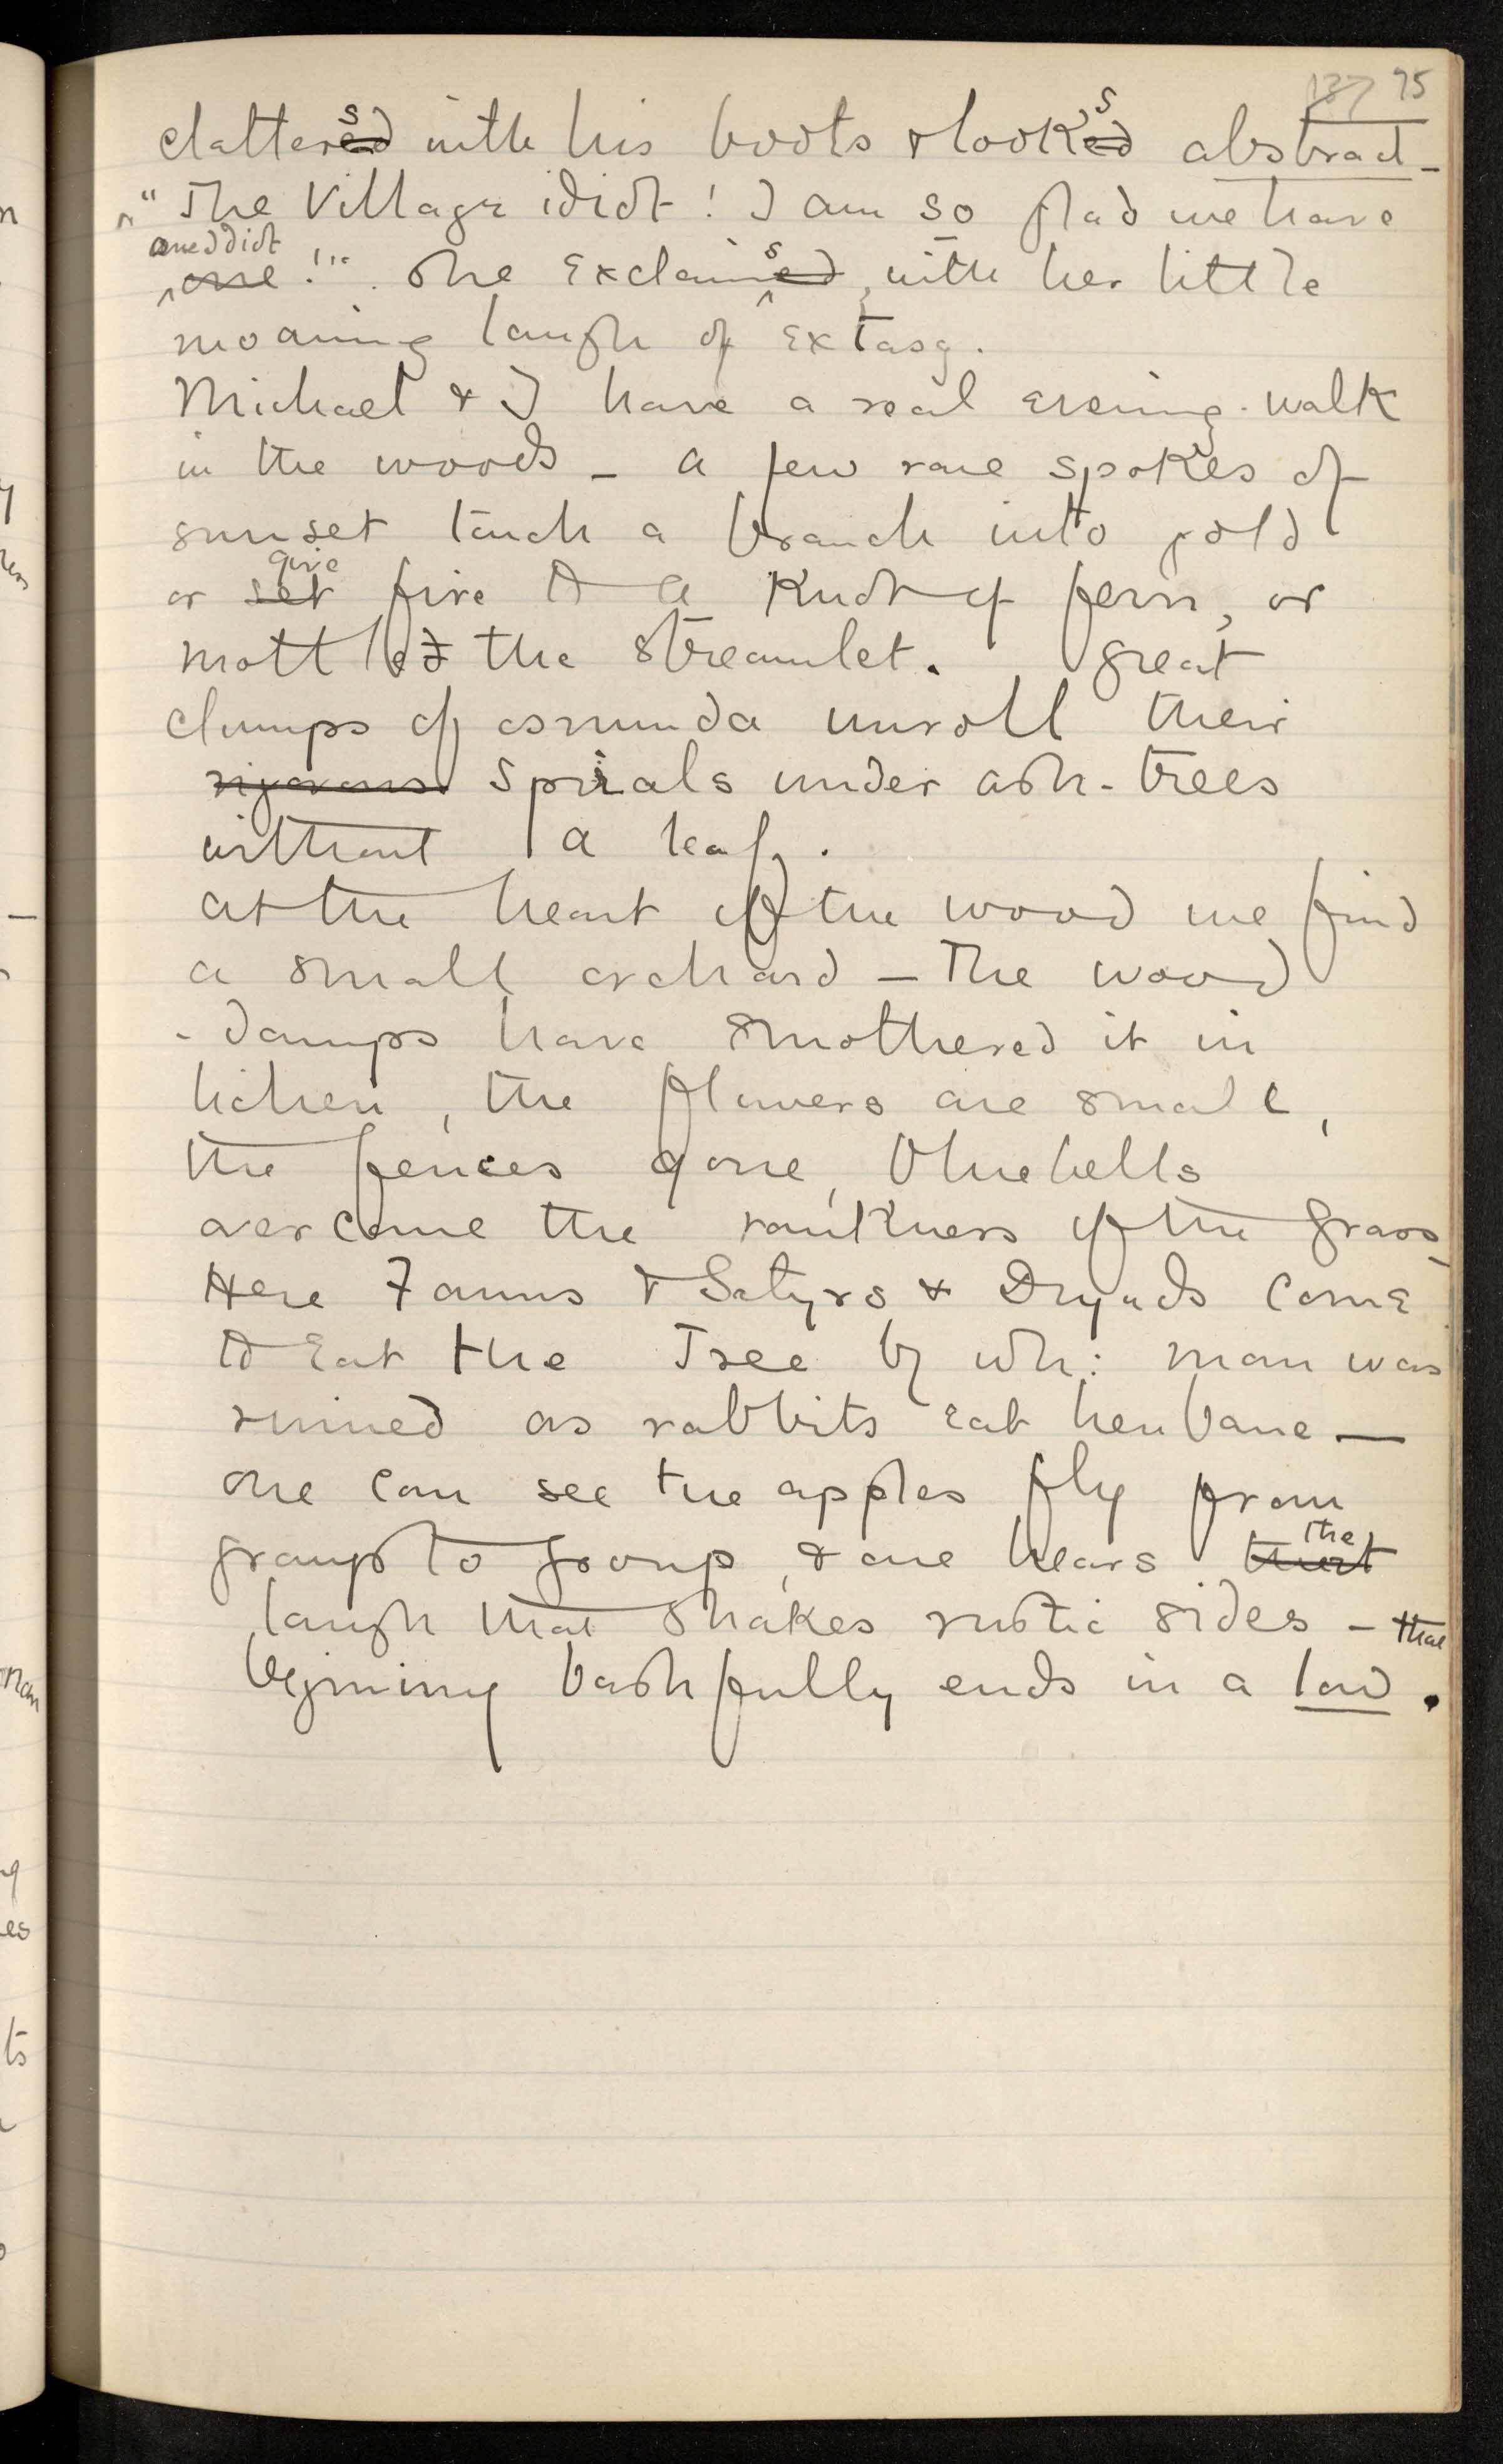 137 95
clattereds with his boots & lookeds abstract -
"The Village idiot! I am so glad we have
an eddiot
one!" She exclaimeds, with her little
moaning laugh of extasy.
Michael & I have a real evening-walk
in the woods - a few rare spokes of
sunset touch a branch into gold
give
or set fire to a knot of fern, or
mottled the streamlet. Great
clumps of osmunda unroll their
rigorous spirals under ash-trees
without a leaf.
At the heart of the wood we find
a small orchard - The wood
-damps have smothered it in
lichen, the flowers are small,
the fences gone, bluebells
overcome the rankness of the grass -
Here Fauns & Satyrs & Dryads come
to eat the Tree by wh: man was
ruined as rabbits eat henbane —
one can see the apples fly from
group to group, & one hears the
laugh that shakes rustic sides - that
beginning bashfully ends in a low.